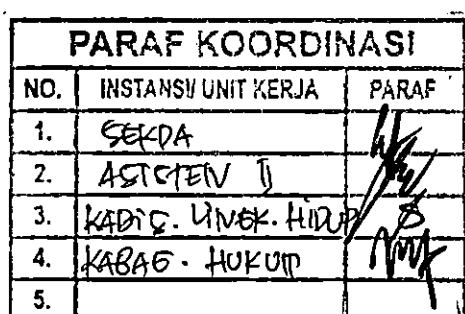 PARAF KOORDINASI
NO. INSTANSI/ UNIT KERJA PARAF
1. SEKDA
2. ASISTEN II
3. KADIS. LINGK. HIDUP
4. KABAG. HUKUM
5.